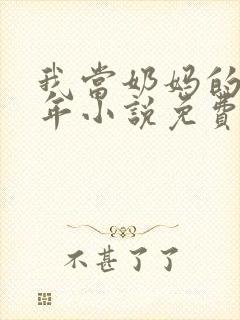 我当奶妈的
年小说免费
不甚了了